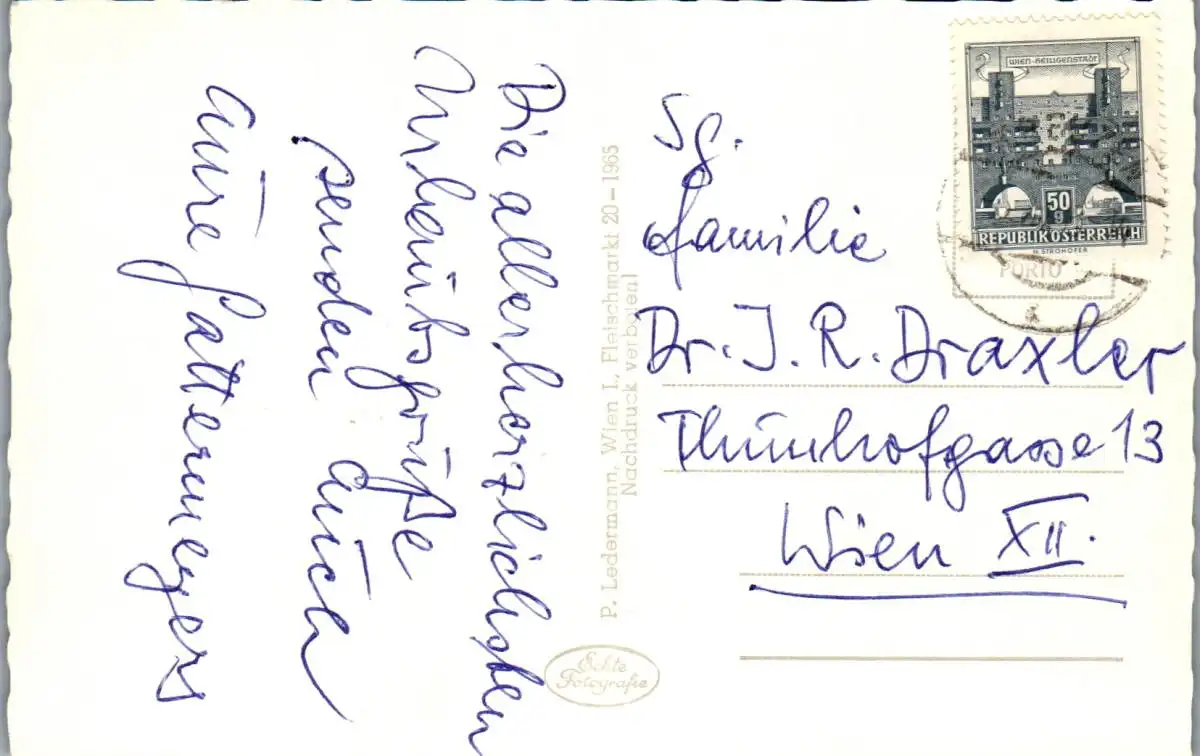 Die allerherzlichsten
Urlaubsgrüße
senden Euch
Eure Gattermeyers
P. Ledermann, Wien I., Fleischmarkt 20 – 1965
Nachdruck verboten!
Echte
Fotografie
WIEN-HEILIGENSTADT
50
g
REPUBLIK ÖSTERREICH
H. STROHOFER
PORTO
Sg.
Familie
Dr. J. R. Draxler
Thunhofgasse 13
Wien XII.